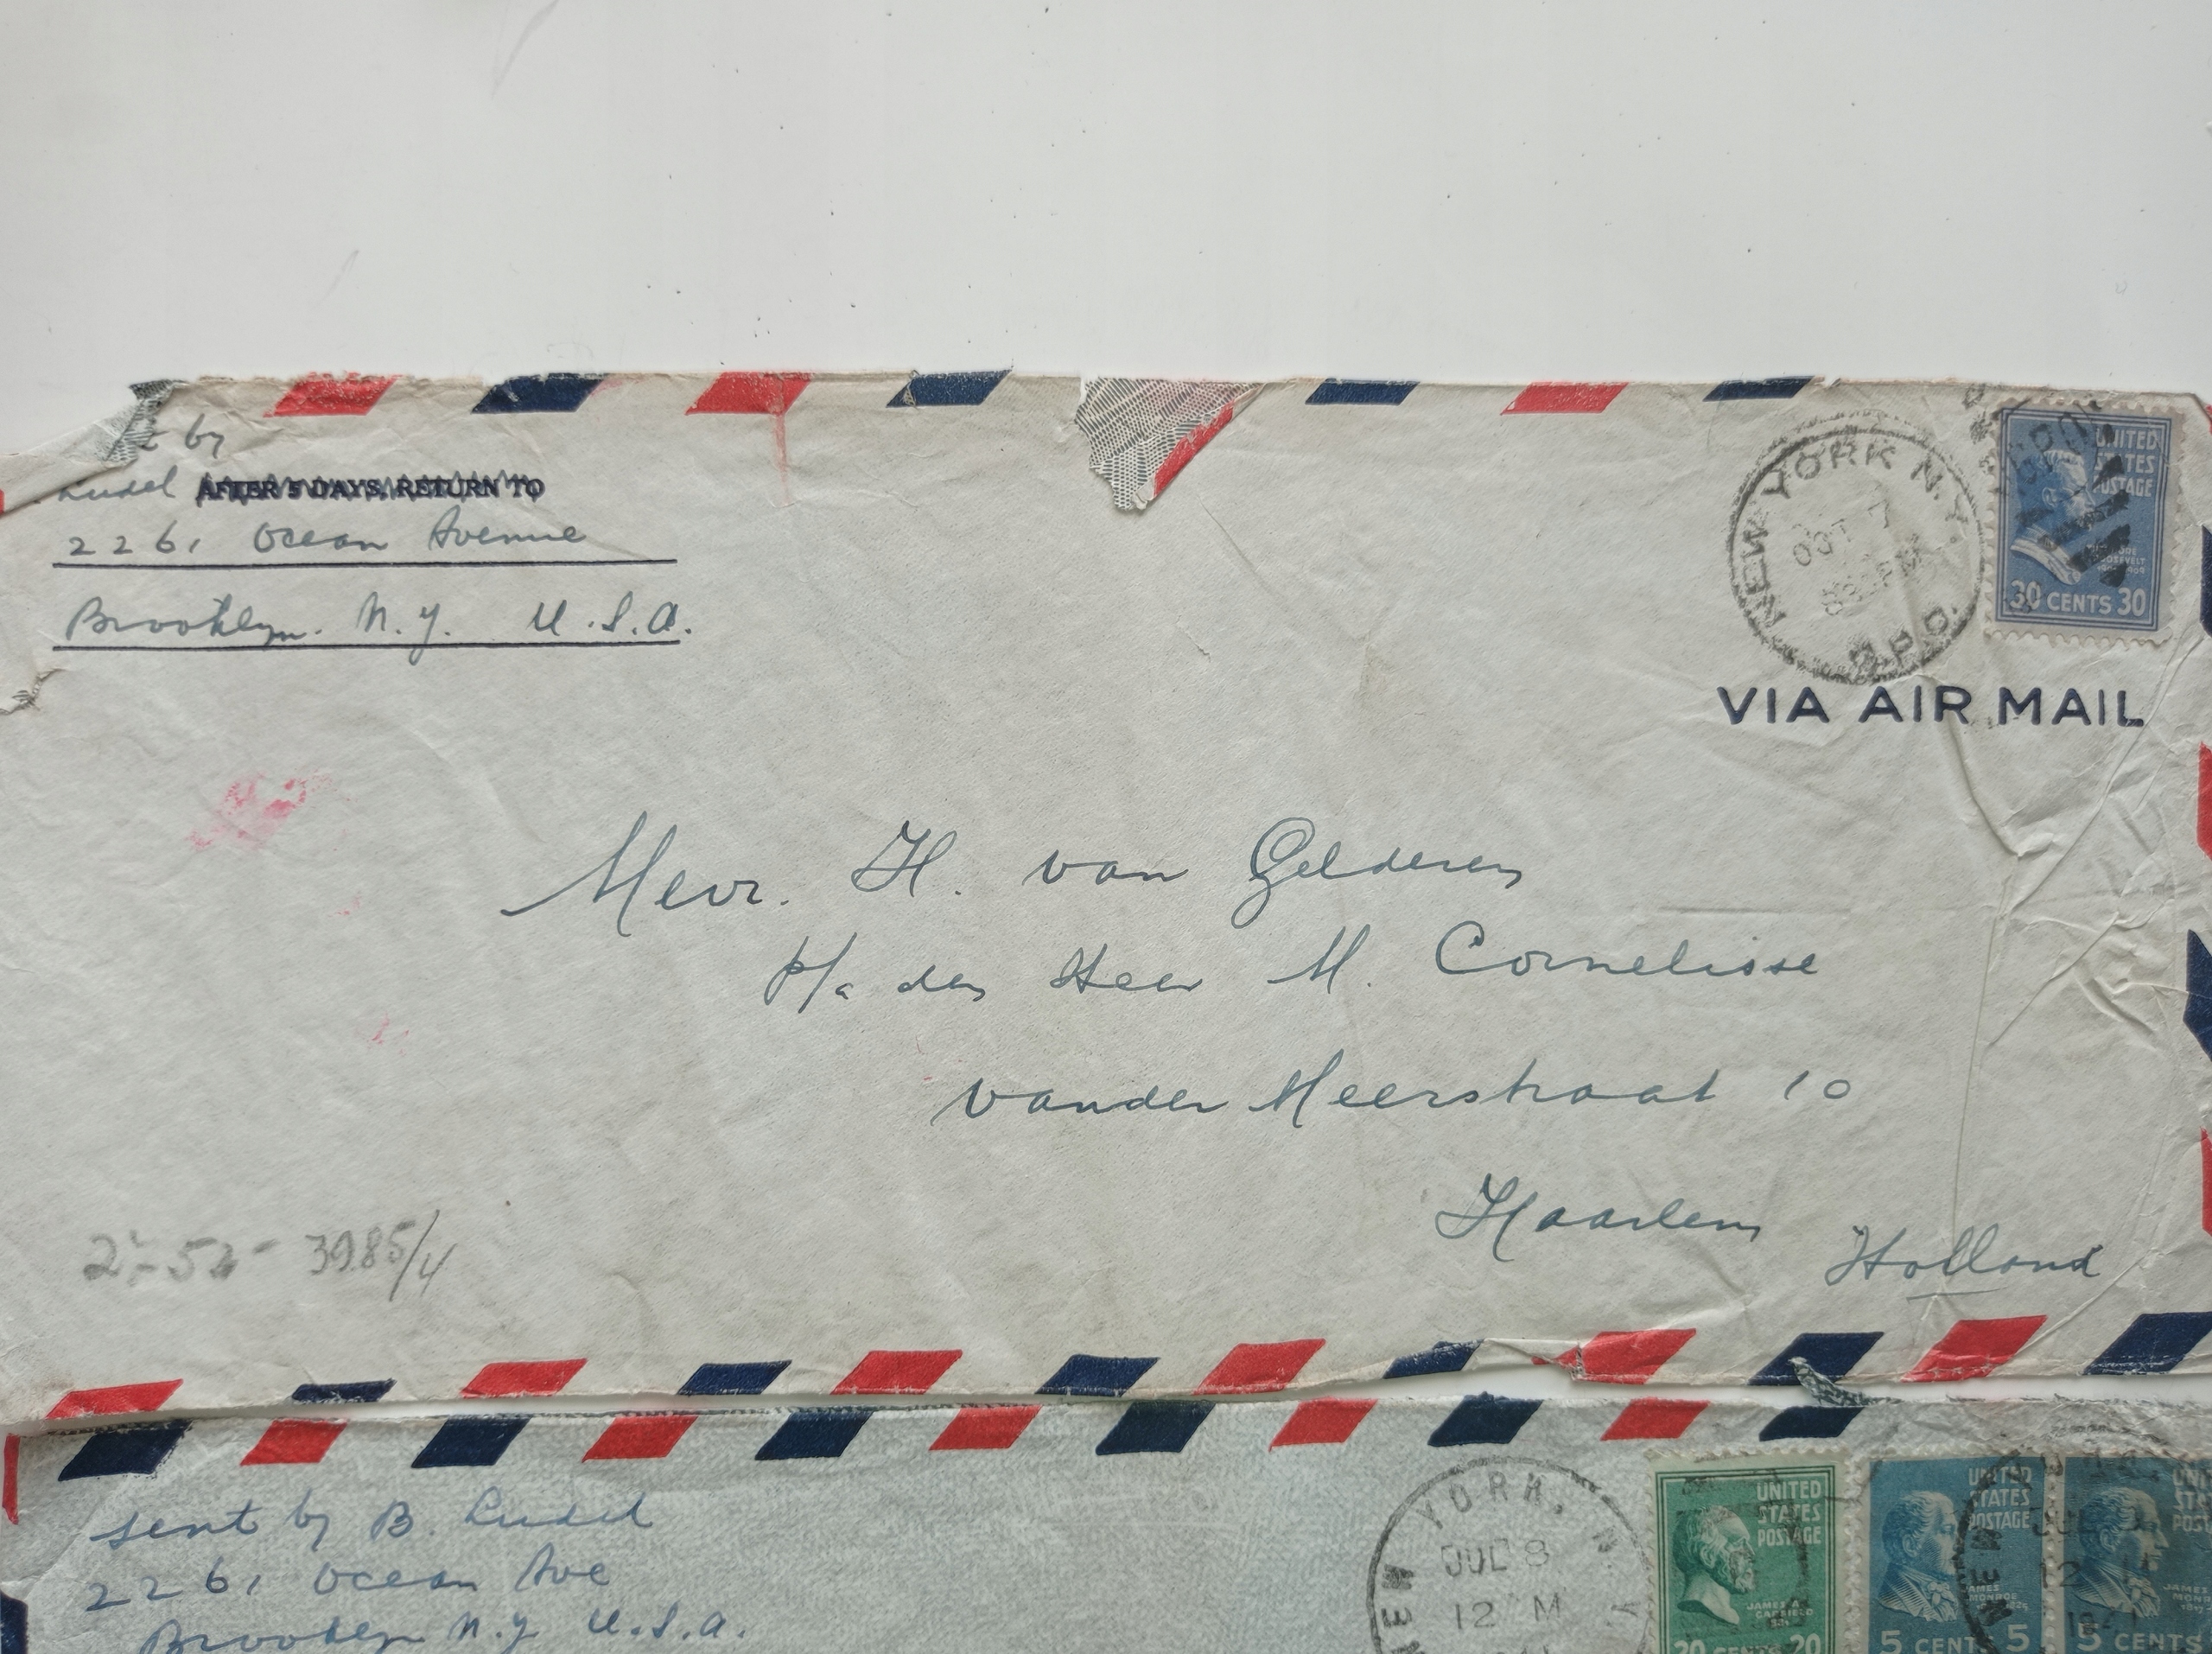 by
Ludel AFTER 5 DAYS, RETURN TO
2261 Ocean Avenue
Brooklyn. N.Y. U.S.A.
NEW YORK N.Y.
OCT 7
PM
G.P.O.
UNITED
STATES
POSTAGE
30 CENTS 30
VIA AIR MAIL
Mevr. H. van Gelderen
P/a den Heer M. Cornelisse
vander Meerstraat 10
Haarlem
Holland
2-52- 3985/4
sent by B. Ludel
2261 Ocean Ave
Brooklyn N.Y. U.S.A.
NEW YORK, N.
JUL 8
12 M
UNITED
STATES
POSTAGE
JAMES A.
GARFIELD
20 CENTS 20
UNITED
STATES
POSTAGE
JAMES
MONROE
5 CENTS 5
5 CENTS